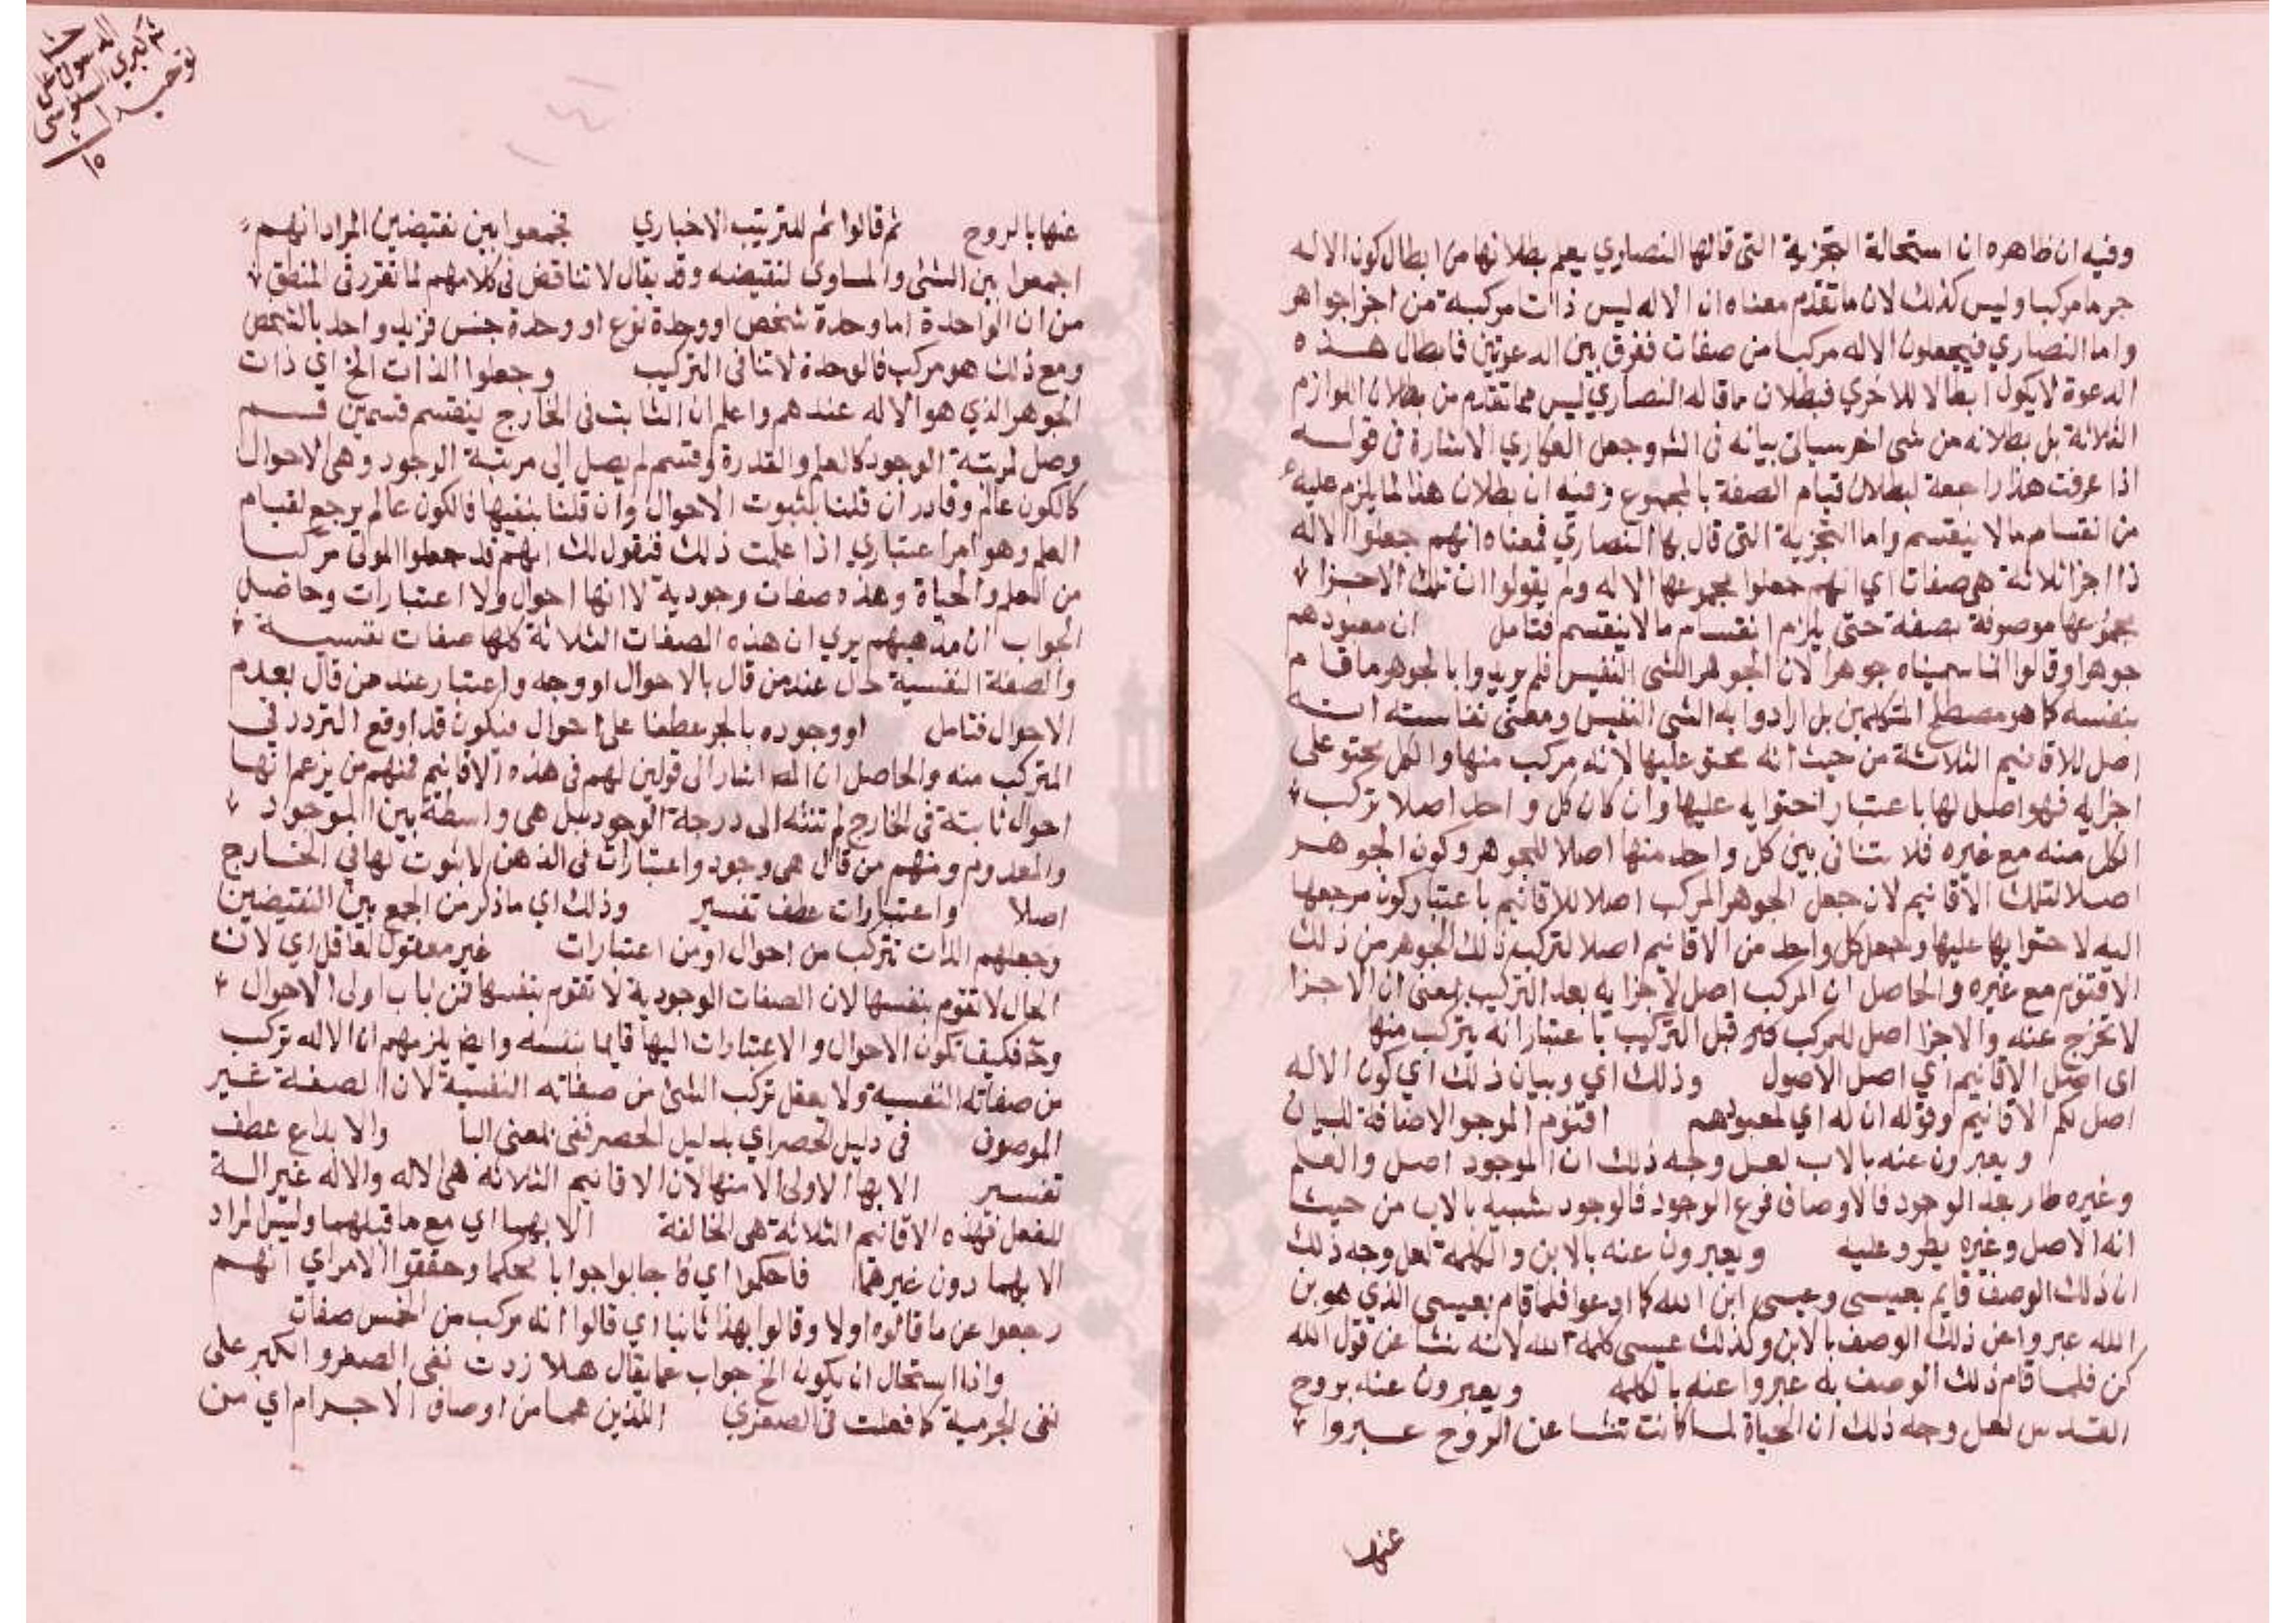 وفيه ان ظاهره ان استحالة التجزية التى قالها النصاري يعلم بطلانها من ابطال كون الاله
جرما مركبا وليس كذلك لان ما تقدم معناه ان الاله ليس ذات مركبة من اجزا جواهر
واما النصاري فيجعلون الاله مركبا من صفات ففرق بين الدعوتين فابطال هذه
الدعوة لا يكون ابطالا للاخري فبطلان ما قاله النصاري ليس مما تقدم من بطلان اللوازم
الثلاثة بل بطلانه من شى اخر سياتى بيانه فى الشر وجعل العكاري الاشارة فى قوله
اذا عرفت هذا راجعة لبطلان قيام الصفة بالمجموع وفيه ان بطلان هذا لما يلزم عليه
من انقسام ما لا ينقسم واما التجزية التى قال بها النصاري فمعناه انهم جعلوا الاله
ذا اجزا ثلاثة هى صفات اي انهم جعلوا مجموعها الاله ولم يقولوا ان تلك الاجزا
مجموعها موصوفة بصفة حتى يلزم انقسام ما لا ينقسم فتامل ان معبودهم
جوهرا وقالوا انما سميناه جوهرا لان الجوهر الشى النفيس فلم يريدوا بالجوهر ما قام
بنفسه كما هو مصطلح المتكلمين بل ارادوا به الشى النفيس ومعنى نفاسته انه
اصل للاقانيم الثلاثة من حيث انه محتو عليها لانه مركب منها والكل محتو على
اجزايه فهو اصل لها باعتبار احتوايه عليها وان كان كل واحد اصلا تركب
الكل منه مع غيره فلا تنافى بين كل واحد منها اصلا للجوهر وكون الجوهر
اصلا لتلك الاقانيم لان جعل الجوهر المركب اصلا للاقانيم باعتبار كون مرجعها
اليه لاحتوايها عليها وجعل كل واحد من الاقانيم اصلا لتركبه ذلك الجوهر من ذلك
الاقنوم مع غيره والحاصل ان المركب اصل لاجزايه بعد التركيب بمعنى ان الاجزا
لا تخرج عنه والاجزا اصل للمركب قبل التركيب باعتبار انه يتركب منها
اى اصل الاقانيم اي اصل الاصول وذلك اي وبيان ذلك اي كون الاله
اصل لكم الاقانيم وقوله ان له اي لمعبودهم اقنوم الموجو الاضافة للبيان
ويعبرون عنه بالاب لعل وجه ذلك ان الموجود اصل والعلم
وغيره طار بعد الوجود فالاوصاف فرع الوجود فالوجود شبيه بالاب من حيث
انه الاصل وغيره يطرو عليه ويعبرون عنه بالابن والكلمة لعل وجه ذلك
ان ذلك الوصف قايم بعيسى وعيسى ابن الله كما ادعوا فلما قام بعيسى الذي هو بن
الله عبروا عن ذلك الوصف بالابن وكذلك عيسى كلمة الله لانه نشا عن قول الله
كن فلما قام ذلك الوصف به عبروا عنه بالكلمه ويعبرون عنه بروح
القدس لعل وجه ذلك ان الحياة لما كانت تنشا عن الروح عبروا
عنها
عنها بالروح ثم قالوا ثم للترتيب الاخباري فجمعوا بين نقيضين المراد انهم
اجمعوا بين الشئ والمساوى لنقيضه وقد يقال لا تناقض فى كلامهم لما تقرر فى المنطق
من ان الواحدة اما وحدة شخص او وحدة نوع او وحدة جنس فزيد واحد بالشخص
ومع ذلك هو مركب فالوحدة لا تنافى التركيب وجعلوا الذات الخ اي ذات
الجوهر الذي هو الاله عندهم واعلم ان الثابت فى الخارج ينقسم قسمين قسم
وصل لمرتبة الوجود كالعلم والقدرة وقسم لم يصل الى مرتبة الوجود وهى الاحوال
كالكون عالم وقادر ان قلنا بثبوت الاحوال وان قلنا بنفيها فالكون عالم يرجع لقيام
العلم وهو امر اعتباري اذا علمت ذلك فنقول لك انهم قد جعلوا المولى مركبا
من العلم والحياة وهذه صفات وجودية لا انها احوال ولا اعتبارات وحاصل
الجواب ان مذهبهم يري ان هذه الصفات الثلاثة كلها صفات نفسية
والصفة النفسية حال عند من قال بالاحوال او وجه واعتبار عند من قال بعدم
الاحوال فتامل او وجوده بالجر عطفا على احوال فيكون قد اوقع التردد فى
المتركب منه والحاصل ان المص اشار الى قولين لهم فى هذه الاقانيم فمنهم من يزعم انها
احوال ثابتة فى الخارج لم تنته الى درجة الوجود بل هى واسطة بين الموجود
والمعدوم ومنهم من قال هى وجود واعتبارات فى الذهن لا ثبوت لها في الخارج
اصلا واعتبارات عطف تفسير وذلك اي ما ذكر من الجمع بين النقيضين
وجعلهم الذات تتركب من احوال او من اعتبارات غير معقول لعاقل اي لان
الحال لا تقوم بنفسها لان الصفات الوجودية لا تقوم بنفسها فمن باب اولى الاحوال
وح فكيف تكون الاحوال والاعتبارات اليها قايما بنفسه وايض يلزمهم ان الاله تركب
من صفاته النفسية ولا يعقل تركب الشئ من صفاته النفسية لان الصفة غير
الموصوف فى دليل الحصر اي بدليل الحصر ففى بمعنى البا والابداع عطف
تفسير الا بها الاولى الا منها لان الاقانيم الثلاثه هى الاله والاله غير الة
للفعل فهذه الاقانيم الثلاثة هى الخالقة الا بهما اي مع ما قبلهما وليس المراد
الا بهما دون غيرهما فاحكموا اي فاجابوا جوابا محكما وحققوا الامر اي انهم
رجعوا عن ما قالوه اولا وقالوا بهذا ثانيا اي قالوا انه مركب من الخمس صفات
واذا استحال ان يكون الخ جواب عما يقال هلا زدت نفى الصغر والكبر على
نفى الجرمية كما فعلت فى الصغري اللذين هما من اوصاف الاجرام اي من